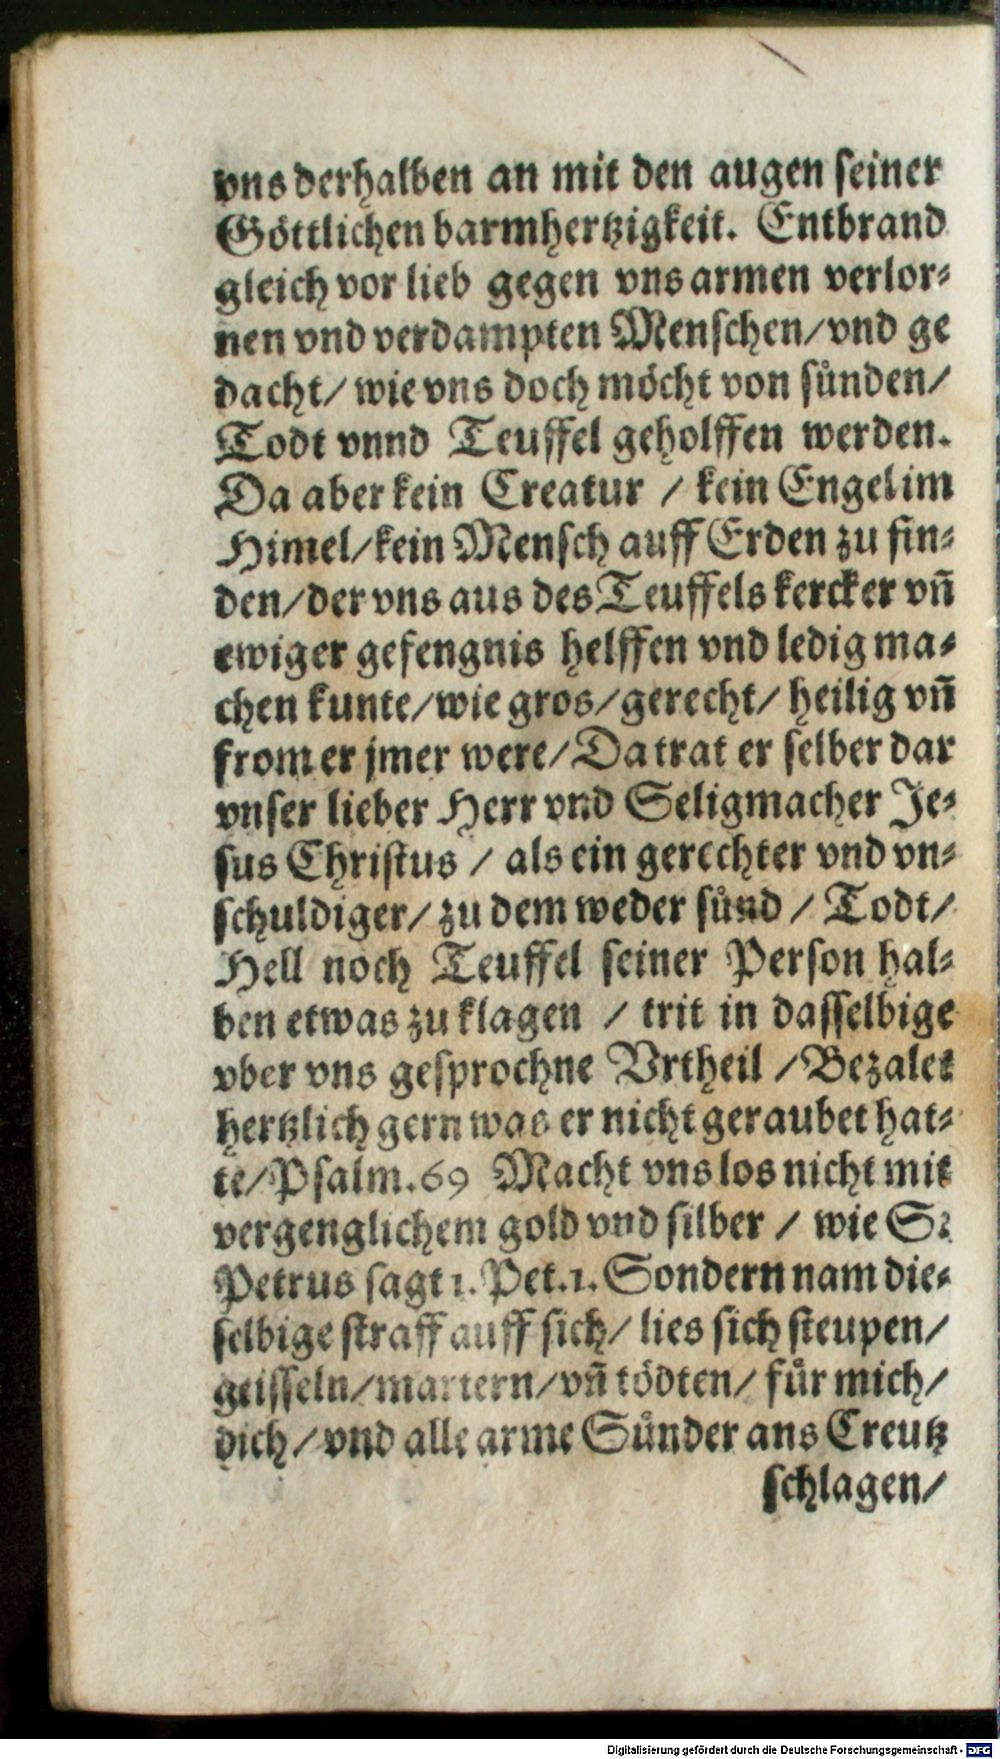 vns derhalben an mit den augen seiner
Göttlichen barmhertzigkeit. Entbrand
gleich vor lieb gegen vns armen verlor⸗
nen vnd verdampten Menschen/vnd ge
dacht/ wie vns doch möcht von sünden/
Todt vnnd Teuffel geholffen werden.
Da aber kein Creatur / kein Engel im
Himel/kein Mensch auff Erden zu fin⸗
den/der vns aus des Teuffels kercker vñ
ewiger gefengnis helffen vnd ledig ma⸗
chen kunte/wie gros/gerecht/ heilig vñ
from er jmer were/Da trat er selber dar
vnser lieber Herr vnd Seligmacher Je⸗
sus Christus / als ein gerechter vnd vn⸗
schuldiger/ zu dem weder sünd / Todt/
Hell noch Teuffel seiner Person hal⸗
ben etwas zu klagen / trit in dasselbige
vber vns gesprochne Vrtheil /Bezalet
hertzlich gern was er nicht geraubet hat⸗
te/Psalm.69 Macht vns los nicht mit
vergenglichem gold vnd silber / wie S.
Petrus sagt 1. Pet.1. Sondern nam die⸗
selbige straff auff sich/ lies sich steupen/
geisseln/martern/vñ tödten/ für mich/
dich/vnd alle arme Sünder ans Creutz
schlagen/
Digitalisierung gefördert durch die Deutsche Forschungsgemeinschaft - DFG